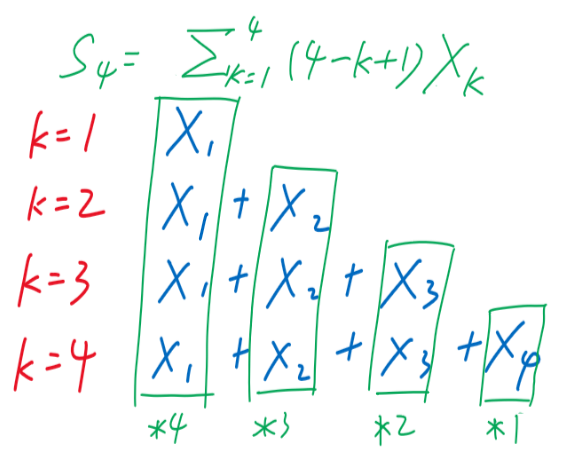 S₄ = ∑⁴ₖ₌₁ (4-k+1) Xₖ
k=1 X₁
k=2 X₁ + X₂
k=3 X₁ + X₂ + X₃
k=4 X₁ + X₂ + X₃ + X₄
*4 *3 *2 *1